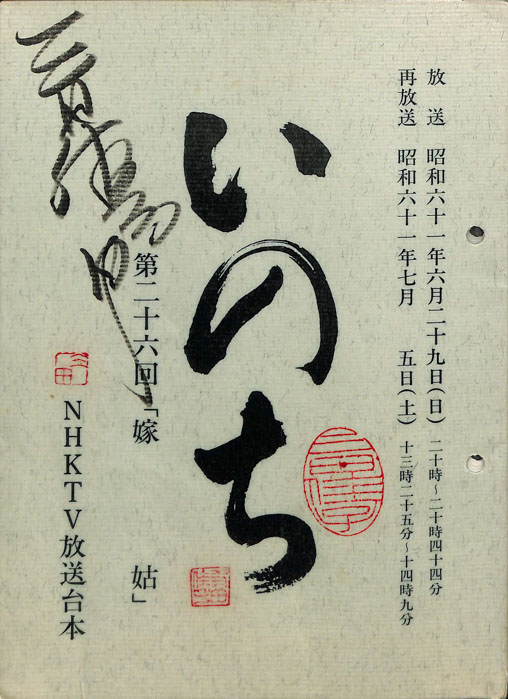 放　送　昭和六十一年六月二十九日(日)　二十時〜二十時四十四分
再放送　昭和六十一年七月　　五日(土)　十三時二十五分〜十四時九分
いのち
第二十六回「嫁　　姑」
NHKTV放送台本